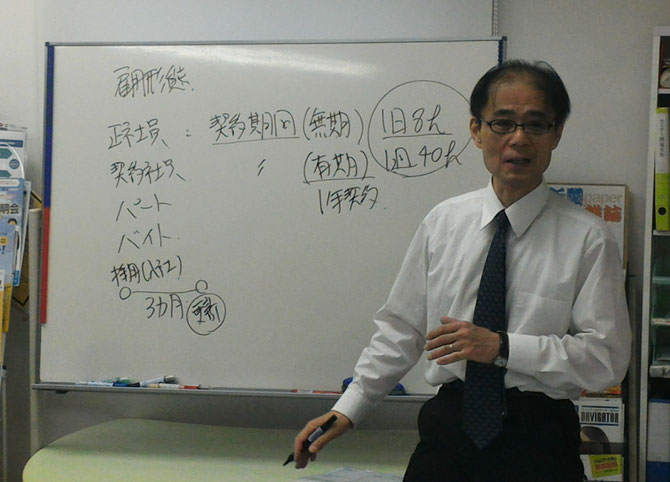 雇用形態
正社員 : 契約期間 (無期) 1日8h
契約社員 〃 (有期) 1週40h
1年契約
パート
バイト
採用(入社)
3カ月
paper
NAVIGATOR